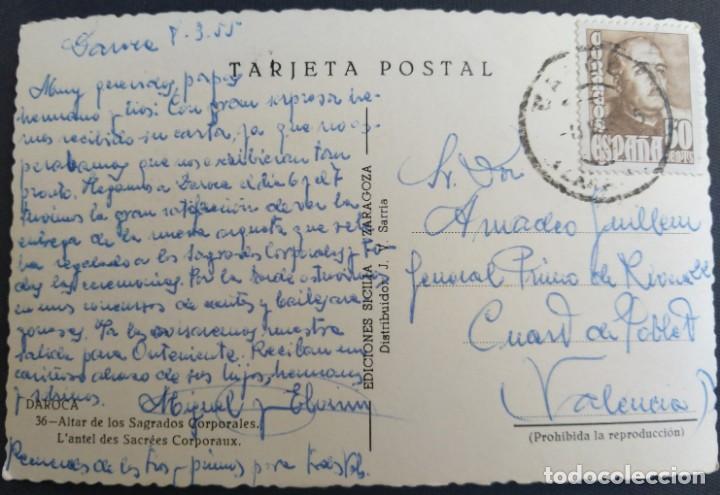 Daroca 8-3-55
TARJETA POSTAL
Muy queridos papas
hermano y tios: Con gran sorpresa he-
mos recibido su carta, ya que no es-
perabamos que nos escribieran tan
pronto. Llegamos a Daroca el dia 6 y el 7
tuvimos la gran satisfacción de ver la
entrega de la nueva arqueta que se
ha regalado a los Sagrados Corporales y to-
das las ceremonias. Por la tarde estuvimos
en unos concursos de cantos y bailes ara-
goneses. Ya les avisaremos nuestra
salida para Onteniente. Reciban un
cariñoso abrazo de sus hijos, hermanos
y sobrinos. Miguel y
DAROCA
36—Altar de los Sagrados Corporales.
L'antel des Sacrées Corporaux.
Recuerdos de los tios y primos para todos
EDICIONES SICILIA - ZARAGOZA
Distribuidor: J. V. Sarria
CORREOS
ESPAÑA
50
CENTIMOS
Sr. Don
Amadeo Guillem
General Primo de Rivera
Cuard de Poblet
(Valencia)
(Prohibida la reproducción)
todocoleccion
todocoleccion.net